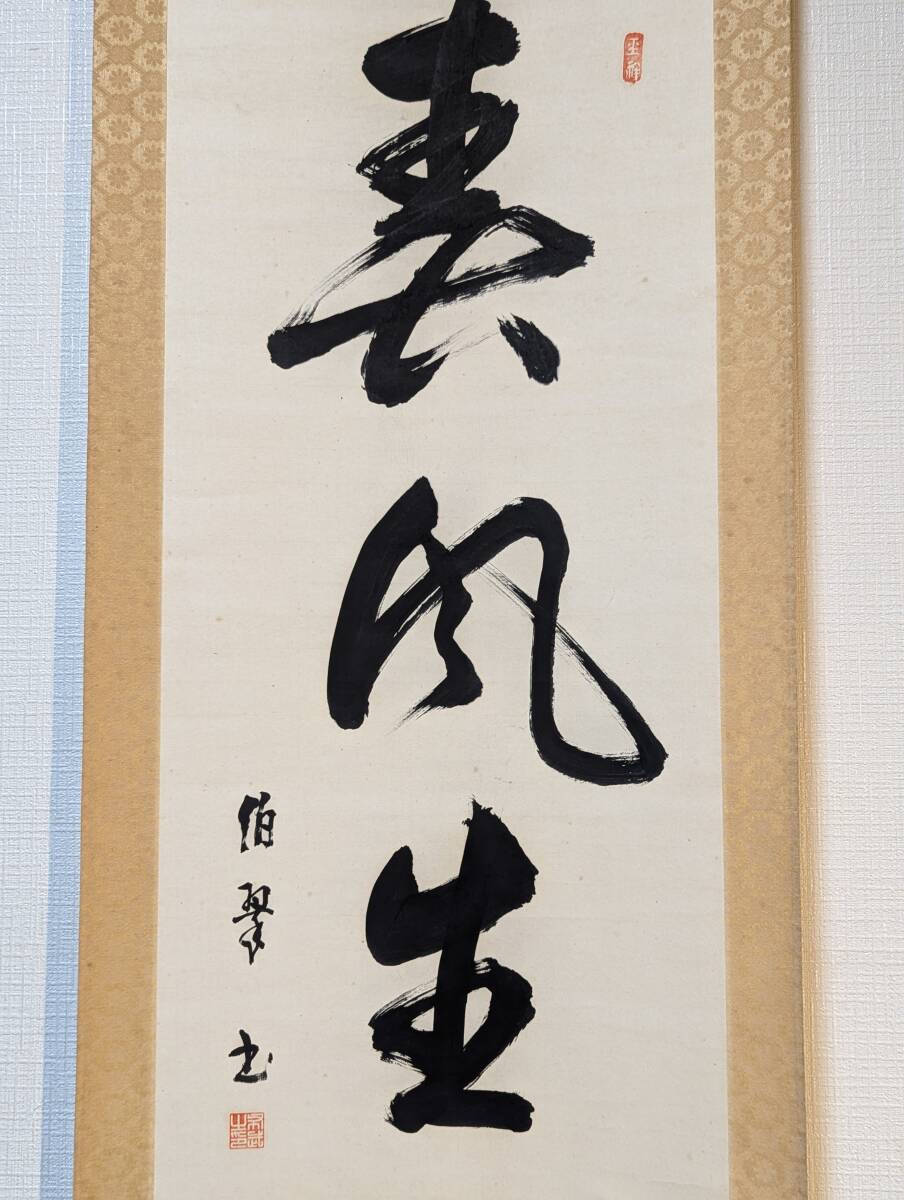 春風生
伯翠書